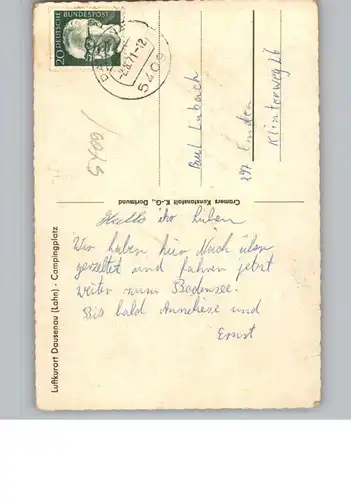 20 DEUTSCHE BUNDESPOST
-2.8.71-12
5409
Paul Lubach
297 Emden
Klinterweg 26
5409/
Cramers Kunstanstalt K.-G., Dortmund
Luftkurort Dausenau (Lahn) · Campingplatz
Hallo ihr Lieben
Wir haben hier Nach über
gezeltet und fahren jetzt
weiter zum Bodensee.
Bis bald Anneliese und
Ernst